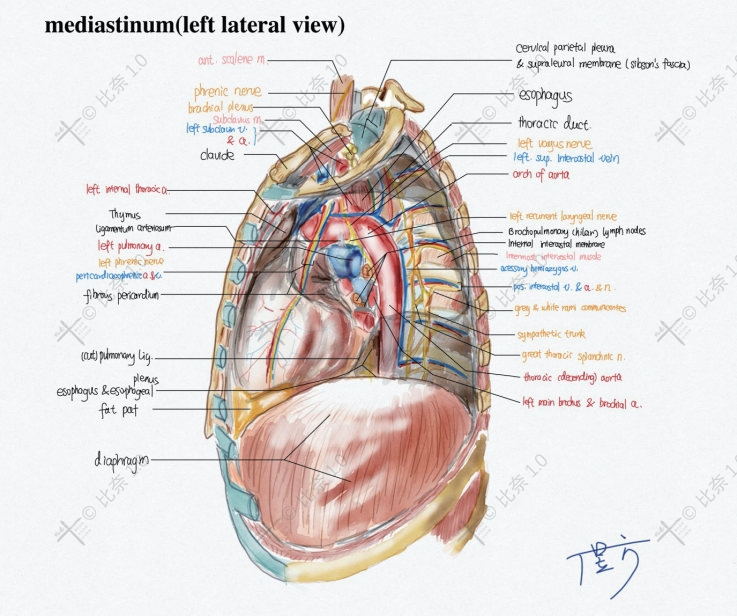 mediastinum(left lateral view)
ant. scalene m.
phrenic nerve
brachial plexus
subclavius m.
left subclavin v.
& a.
clavicle
left internal thoracic a.
Thymus
ligamentum arteriosum
left pulmonary a.
left phrenic nerve
pericardiacophrenic a & v.
fibrous pericardium
(cut) pulmonary lig.
plenus
esophagus & esophageal
fat pat
diaphragm
cervical parietal pleura
& supraleural membrane (sibson's fascia)
esophagus
thoracic duct.
left vagus nerve
left. sup. intercostal vein
arch of aorta
left recurrent laryngeal nerve
Brochopulmonary (hilar) lymph nodes
Internal intercostal membrane
innermost intercostal muscle
acessory hemiazygos v.
pos. intercostal v. & a. & n.
grey & white rami communicantes
sympathetic trunk
great thoracic splanchnic n.
thoracic (descending) aorta
left main brochus & brochial a.
© 比奈 1.0